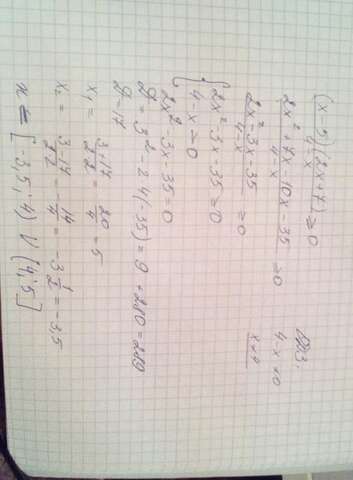 (x-5)(2x+7)/4-x = 0
2x²+7x-10x-35/4-x = 0
2x²-3x-35/4-x = 0
{2x²-3x-35=0
4-x=0
2x²-3x-35=0
D=3²-2·4(-35)=9+280=289
D=17
x₁ = 3+17/2·2 = 20/4 = 5
x₂ = 3-17/2·2 = -14/4 = -3 1/2 = -3,5
x ∈ [-3,5; 4) ∪ (4; 5]
ОДЗ:
4-x≠0
x≠4